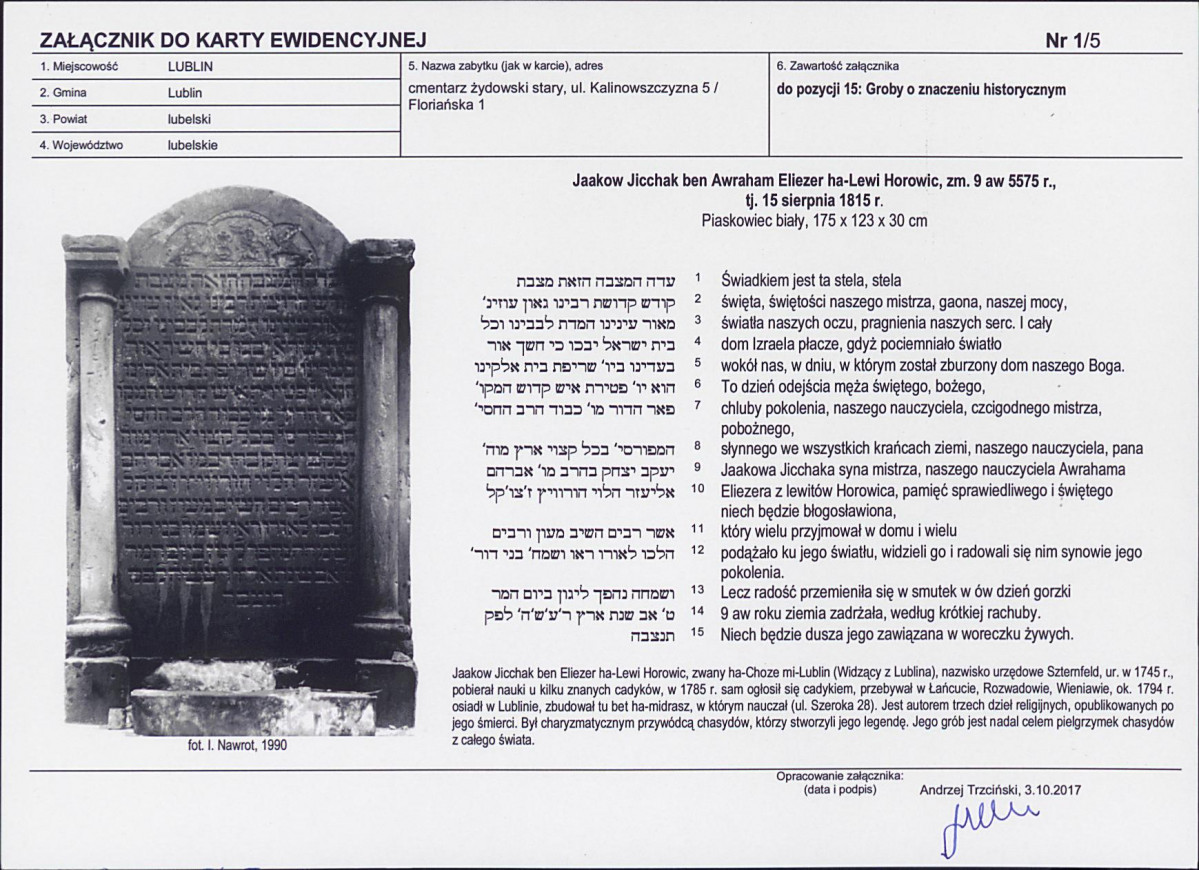 ZAŁĄCZNIK DO KARTY EWIDENCYJNEJ
Nr 1/5
1. Miejscowość LUBLIN
2. Gmina Lublin
3. Powiat lubelski
4. Województwo lubelskie
5. Nazwa zabytku (jak w karcie), adres
cmentarz żydowski stary, ul. Kalinowszczyzna 5 /
Floriańska 1
6. Zawartość załącznika
do pozycji 15: Groby o znaczeniu historycznym
Jaakow Jicchak ben Awraham Eliezer ha-Lewi Horowic, zm. 9 aw 5575 r.,
tj. 15 sierpnia 1815 r.
Piaskowiec biały, 175 x 123 x 30 cm
עדה המצבה הזאת מצבת 1 Świadkiem jest ta stela, stela
קודש קדושת רבינו גאון עוזינ' 2 święta, świętości naszego mistrza, gaona, naszej mocy,
מאור עינינו המדת לבבינו וכל 3 światła naszych oczu, pragnienia naszych serc. I cały
בית ישראל יבכו כי חשך אור 4 dom Izraela płacze, gdyż pociemniało światło
בעדינו ביו' שריפת בית אלקינו 5 wokół nas, w dniu, w którym został zburzony dom naszego Boga.
הוא יו' פטירת איש קדוש המקו' 6 To dzień odejścia męża świętego, bożego,
פאר הדור מו' כבוד הרב החסי' 7 chluby pokolenia, naszego nauczyciela, czcigodnego mistrza,
pobożnego,
המפורסי' בכל קצוי ארץ מוה' 8 słynnego we wszystkich krańcach ziemi, naszego nauczyciela, pana
יעקב יצחק בהרב מו' אברהם 9 Jaakowa Jicchaka syna mistrza, naszego nauczyciela Awrahama
אליעזר הלוי הורוויץ ז'צו'קל 10 Eliezera z lewitów Horowica, pamięć sprawiedliwego i świętego
niech będzie błogosławiona,
אשר רבים השיב מעון ורבים 11 który wielu przyjmował w domu i wielu
הלכו לאורו ראו ושמח' בני דור' 12 podążało ku jego światłu, widzieli go i radowali się nim synowie jego
pokolenia.
ושמחה נהפך ליגון ביום המר 13 Lecz radość przemieniła się w smutek w ów dzień gorzki
ט' אב שנת ארץ ר'ע'ש'ה' לפק 14 9 aw roku ziemia zadrżała, według krótkiej rachuby.
תנצבה 15 Niech będzie dusza jego zawiązana w woreczku żywych.
Jaakow Jicchak ben Eliezer ha-Lewi Horowic, zwany ha-Choze mi-Lublin (Widzący z Lublina), nazwisko urzędowe Szternfeld, ur. w 1745 r.,
pobierał nauki u kilku znanych cadyków, w 1785 r. sam ogłosił się cadykiem, przebywał w Łańcucie, Rozwadowie, Wieniawie, ok. 1794 r.
osiadł w Lublinie, zbudował tu bet ha-midrasz, w którym nauczał (ul. Szeroka 28). Jest autorem trzech dzieł religijnych, opublikowanych po
jego śmierci. Był charyzmatycznym przywódcą chasydów, którzy stworzyli jego legendę. Jego grób jest nadal celem pielgrzymek chasydów
z całego świata.
fot. I. Nawrot, 1990
Opracowanie załącznika:
(data i podpis)
Andrzej Trzciński, 3.10.2017